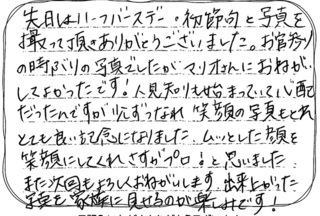 先日はハーフバースデー。初節句と写真を
撮って頂きありがとうございました。お宮参り
の時ぶりの写真でしたがマリオさんにおねがい
してよかったです!人見知りも始まっていて心配
だったんですが少しずつなれ 笑顔の写真もとれ
とても良い記念になりました。ムッとした顔を
笑顔にしてくれさすがプロ!と思いました。
また次回もよろしくおねがいします。出来上がった
写真を家族に見せるのが楽しみです!